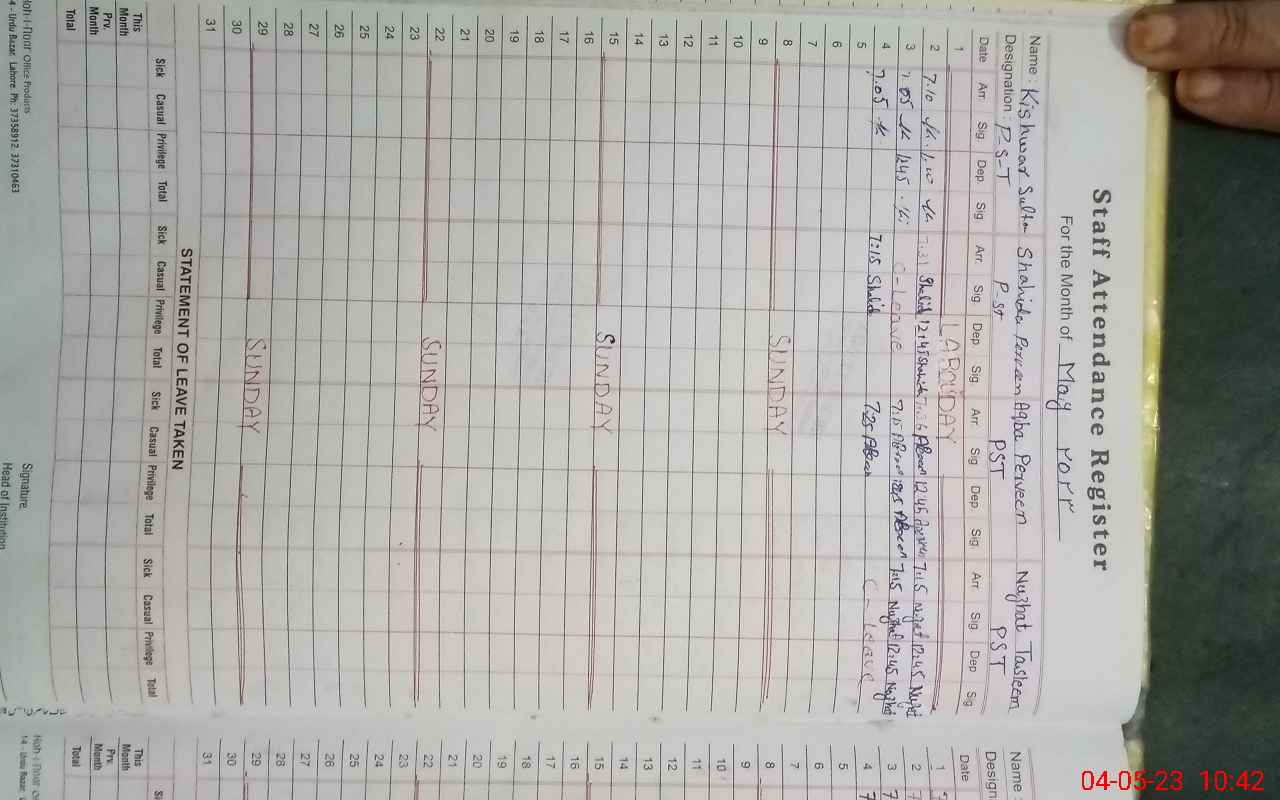 Staff Attendance Register
For the Month of May
Name : Kishwar Sultan Shahida Perveen Aqba Perveen Nuzhat Tasleem
Designation : P-S-T P-ST PST PST
Date Arr. Sig Dep. Sig Arr. Sig Dep. Sig. Arr. Sig Dep. Sig Arr. Sig Dep Sig
1
2 7.10 7.31 Shahid 12:45 Shahida 12.45 7:15 Nuzhat 12:45 Nuzhat
3 7.05 1245 C-Leave 7:15 Nuzhat 12:45 Nuzhat
4 7.05 7:15 Shahid 7:25 C-Leave
5
6
7
8 SUNDAY
9
10
11
12
13
14
15 SUNDAY
16
17
18
19
20
21
22 SUNDAY
23
24
25
26
27
28
29 SUNDAY
30
31
STATEMENT OF LEAVE TAKEN
Sick Casual Privilege Total Sick Casual Privilege Total Sick Casual Privilege Total Sick Casual Privilege Total
This Month
Prv. Month
Total
Signature.
Head of Institution
Office Products
14 - Urdu Bazar, Lahore. Ph: 37358912, 37310463
Name :
Design
Date
1
2
3
4
5
6
7
8
9
10
11
12
13
14
15
16
17
18
19
20
21
22
23
24
25
26
27
28
29
30
31
This Month
Prv. Month
Total
14 - Urdu Bazar,
04-05-23 10:42